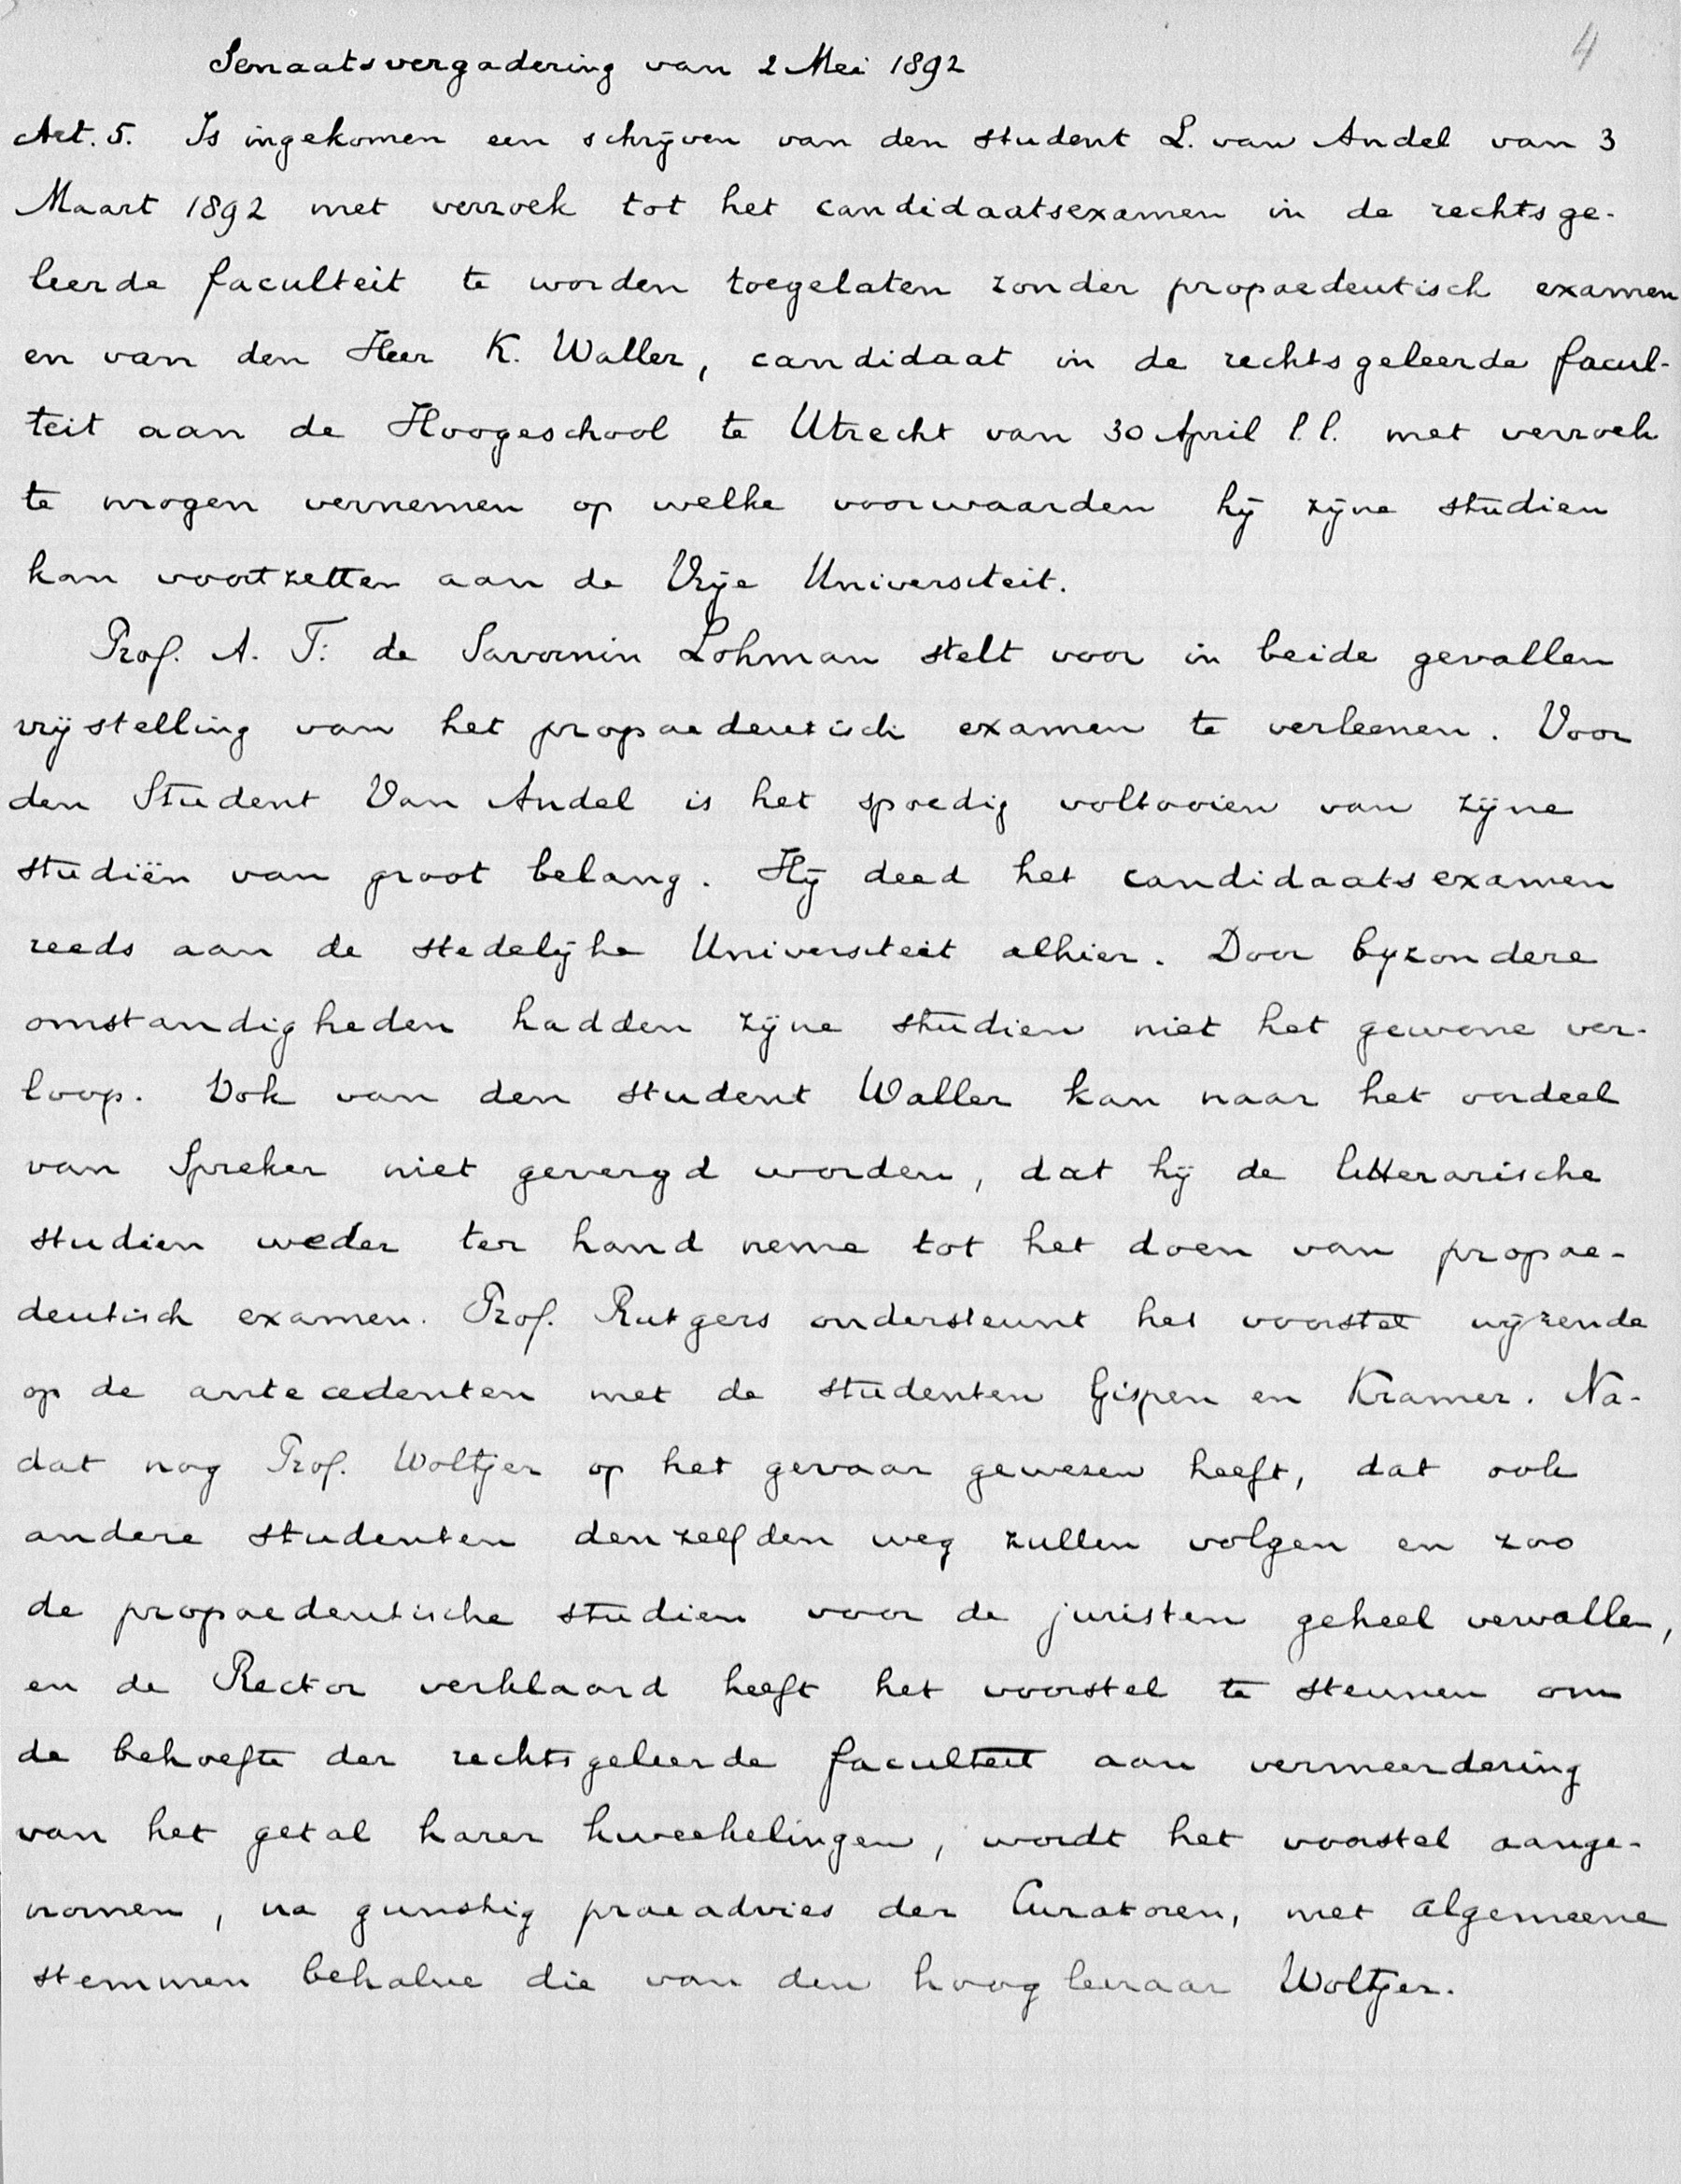 4
Senaatsvergadering van 2 Mei 1892
Art. 5. Is ingekomen een schrijven van den student L. van Andel van 3
Maart 1892 met verzoek tot het candidaatsexamen in de rechtsge-
leerde faculteit te worden toegelaten zonder propaedeutisch examen
en van den Heer K. Waller, candidaat in de rechtsgeleerde facul-
teit aan de Hoogeschool te Utrecht van 30 April l.l. met verzoek
te mogen vernemen op welke voorwaarden hij zijne studien
kan voortzetten aan de Vrije Universiteit.
Prof. A. F. de Savornin Lohman stelt voor in beide gevallen
vrijstelling van het propaedeutisch examen te verleenen. Voor
den Student Van Andel is het spoedig voltooien van zijne
studiën van groot belang. Hij deed het candidaatsexamen
reeds aan de stedelijke Universiteit alhier. Door byzondere
omstandigheden hadden zijne studien niet het gewone ver-
loop. Ook van den student Waller kan naar het oordeel
van Spreker niet gevergd worden, dat hij de litterarische
studien weder ter hand neme tot het doen van propae-
deutisch examen. Prof. Rutgers ondersteunt het voorstel wijzende
op de antecedenten met de studenten Gispen en Kramer. Na-
dat nog Prof. Woltjer op het gevaar gewezen heeft, dat ook
andere studenten denzelfden weg zullen volgen en zoo
de propaedeutische studien voor de juristen geheel vervallen,
en de Rector verklaard heeft het voorstel te steunen om
de behoefte der rechtsgeleerde faculteit aan vermeerdering
van het getal harer kweekelingen, wordt het voorstel aange-
nomen, na gunstig praeadvies der Curatoren, met algemeene
stemmen behalve die van den hoogleeraar Woltjer.